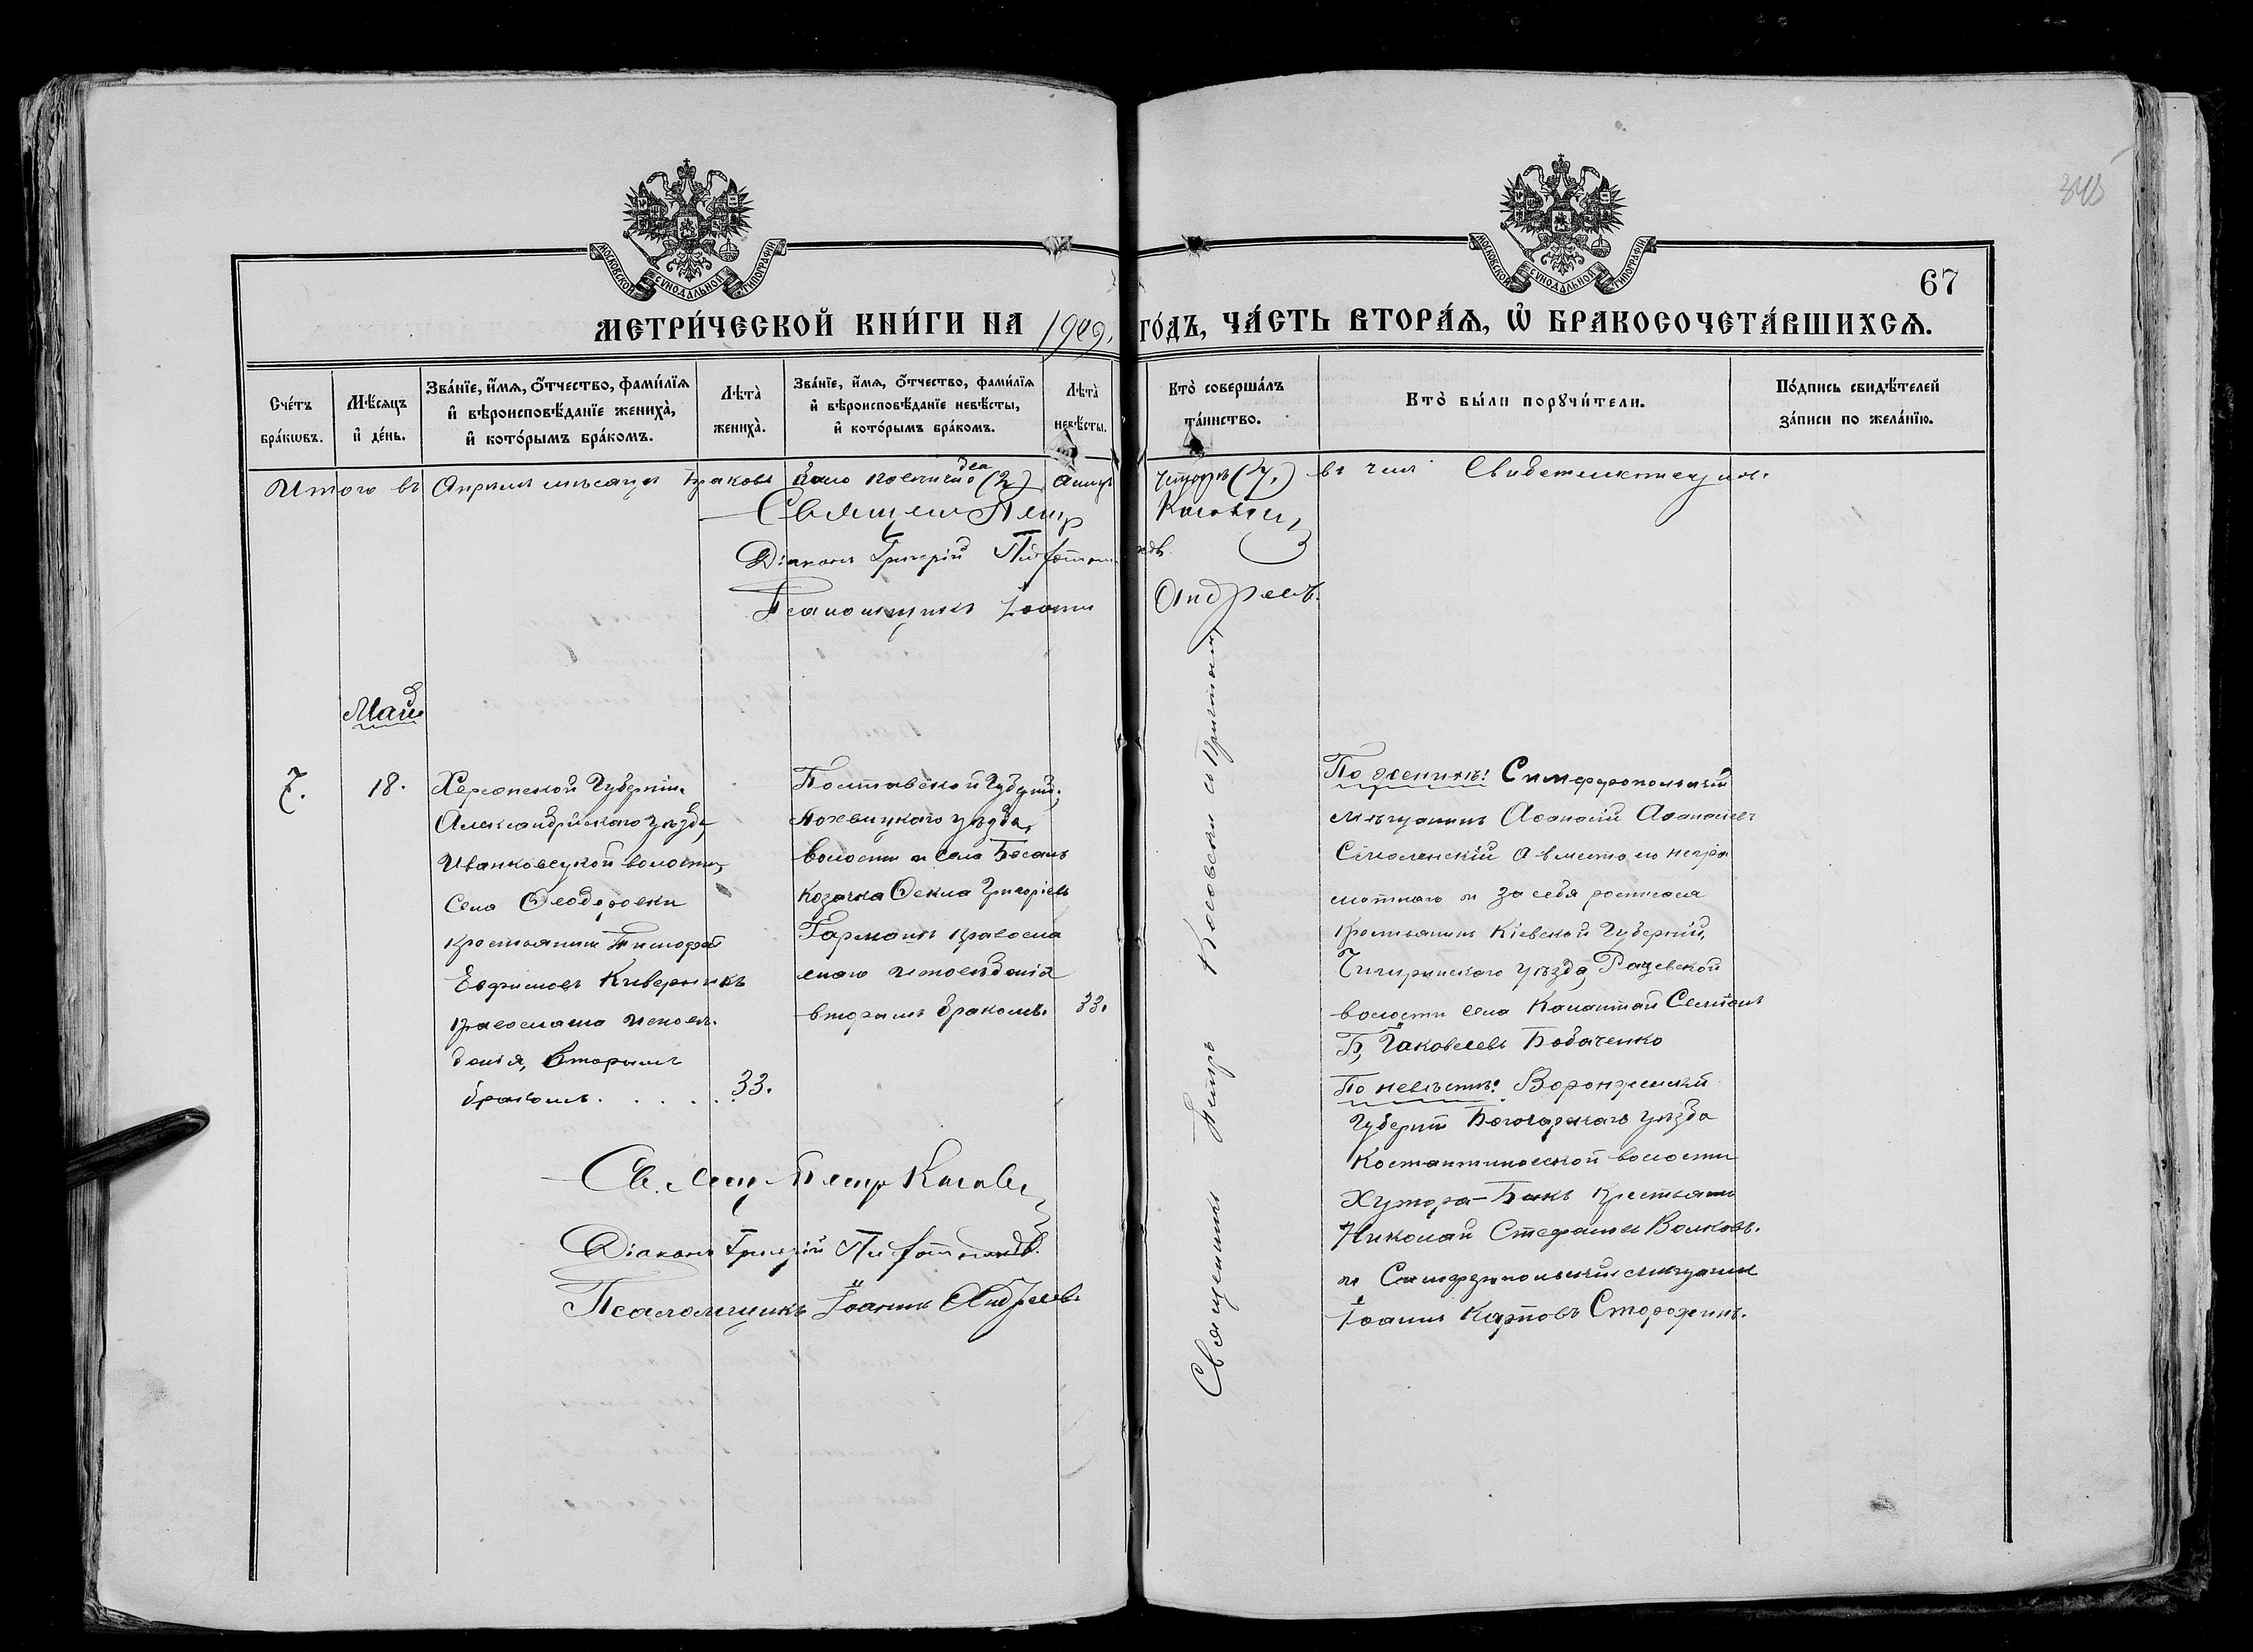 345
67
МОСКОВСКОЙ СѴНОДАЛЬНОЙ ТИПОГРАФІИ
МОСКОВСКОЙ СѴНОДАЛЬНОЙ ТИПОГРАФІИ
МЕТРИ́ЧЕСКОЙ КНИ́ГИ НА 1909. ГО́ДЪ, ЧА́СТЬ ВТОРА́Ѧ, Ѡ҆ БРАКОСОЧЕТА́ВШИХСѦ.
Сче́тъ бра́кѡвъ.
Мѣ́сѧцъ и҆ де́нь.
Зва́нїе, и҆́мѧ, ѻ҆́тчество, фами́лїѧ и҆ вѣроисповѣ́данїе жениха̀, и҆ кото́рымъ бра́комъ.
Лѣта̀ жениха̀.
Зва́нїе, и҆́мѧ, ѻ҆́тчество, фами́лїѧ и҆ вѣроисповѣ́данїе невѣ́сты, и҆ кото́рымъ бра́комъ.
Лѣта̀ невѣ́сты.
Кто̀ соверша́лъ та́инство.
Кто̀ бы́ли порꙋчи́тели.
По́дпись свидѣ́телей за́писи по жела́нїю.
Итого въ Апрѣлѣ мѣсяцѣ браковъ два (2) въ чемъ Свидетельствуемъ.
Священ. Петр Косовск
Діаконъ Григорій
Псаломщикъ Іоаннъ Андреевъ.
Май
7.
18.
Херсонской Губерніи,
Александрійскаго уѣзда,
Иванковецкой волости,
Села Ѳеодоровки
крестьянинъ Тимофей
Евфимовъ Киверникъ
православнаго исповѣ-
данія, вторымъ
бракомъ . . . . . 33.
Полтавской Губерніи,
Лохвицкаго уѣзда,
волости и села
Козачка Ѳекла Григоріева
православ
наго исповѣданія
вторымъ бракомъ. 33.
Священникъ Петръ Косовскій и Причтомъ
По женихѣ: Симферопольскій
мѣщанинъ Аѳанасій Аѳанасіевъ
Смоленскій а вмѣсто его негра
мотнаго и за себя росписался
крестьянинъ Кіевской Губерніи,
Чигиринскаго уѣзда, Рацевской
волости села Калантай
Іаковлевъ Бобаченко
По невѣстѣ: Воронежской
Губерніи Богучарскаго уѣзда
Костантиновской волости
Хутора крестьянинъ
Николай Стефановъ Волковъ.
и Симферопольскій мѣщанинъ
Іоаннъ Карповъ
Свящ. Петр Косовск
Діаконъ Григорій
Псаломщикъ Іоаннъ Андреевъ